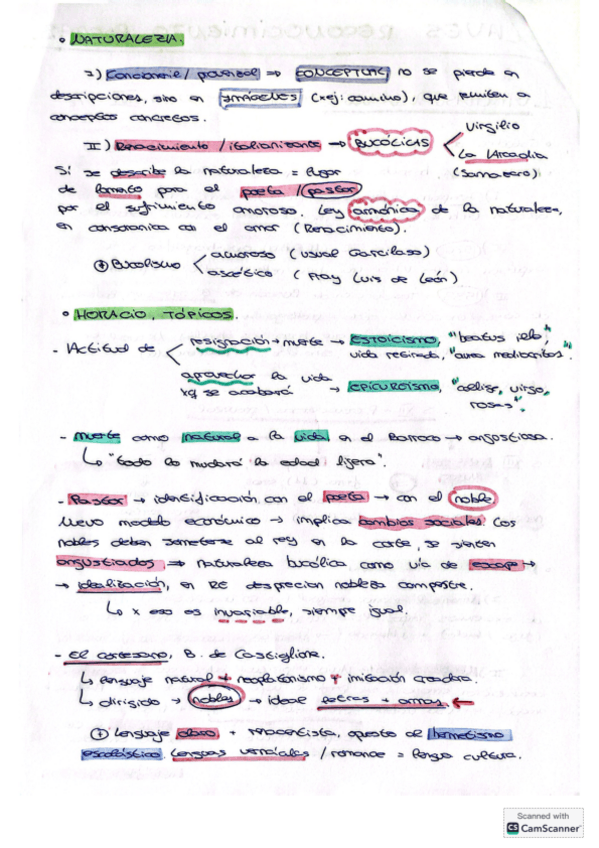 • NATURALEZA.
I) Cancioneril / provenzal ⇒ CONCEPTUAL, no se pierde en
descripciones, sino en IMÁGENES (x ej: camino), que remiten a
conceptos concretos.
II) Renacimiento / italianizante → BUCÓLICAS
Virgilio
La Arcadia
(Sannazaro)
Si se describe la naturaleza = lugar
de lamento para el poeta / pastor
por el sufrimiento amoroso. Ley armónica de la naturaleza,
en consonancia con el amor (Renacimiento).
+ Bucolismo
amoroso (usual Garcilaso)
ascético (Fray Luis de León)
• HORACIO, TÓPICOS.
- Actitud de
resignación → muerte → ESTOICISMO, "beatus ille",
vida retirada, "aurea mediocritas".
aprovechar la vida
xq se acabará → EPICUREÍSMO, "collige, virgo,
rosas".
- Muerte como natural a la vida en el Barroco → angustiosa.
↳ "todo lo mudará la edad ligera".
- Pastor → identificación con el poeta → con el noble.
Nuevo modelo económico → implica cambios sociales. Los
nobles deben someterse al rey en la corte, se sienten
angustiados ⇒ naturaleza bucólica como vía de escape →
→ idealización, en RE desprecian nobleza campestre.
↳ x eso es invariable, siempre igual.
- El cortesano, B. de Castiglione.
↳ lenguaje natural + neoplatonismo + imitación creadora.
↳ dirigido → nobles → ideal letras + armas. ←
+ lenguaje claro + renacentista, opuesto al hermetismo
escolástico. Lenguas vernáculas / romance = lengua cultura.
Scanned with
CS CamScanner